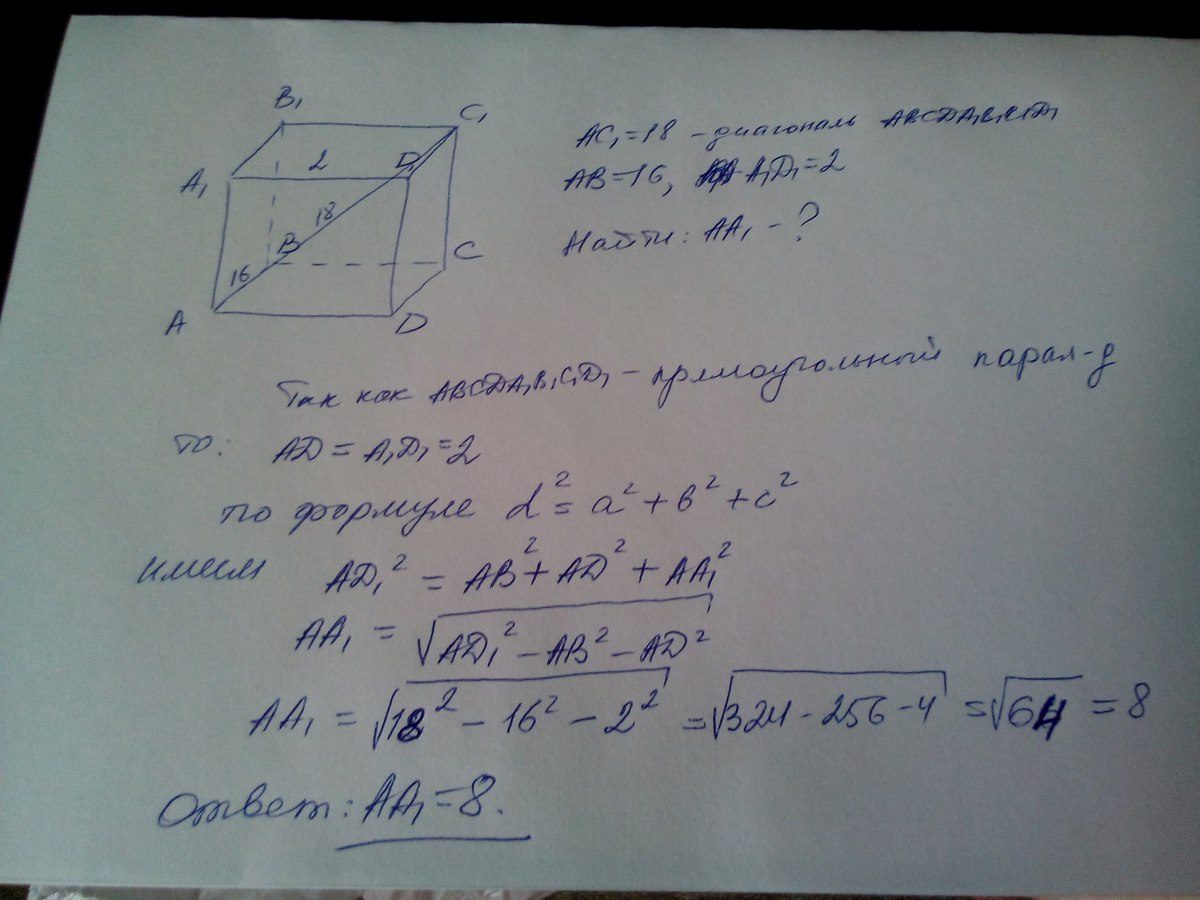 B₁
C₁
A₁
2
D₁
18
B
16
C
A
D
AC₁=18 - диагональ ABCDA₁B₁C₁D₁
AB=16, A₁D₁=2
Найти: AA₁ - ?
Так как ABCDA₁B₁C₁D₁ - прямоугольный парал-д
то: AD = A₁D₁=2
по формуле d² = a² + b² + c²
имеем AD₁² = AB² + AD² + AA₁²
AA₁ = √AD₁² - AB² - AD²
AA₁ = √18² - 16² - 2² = √324 - 256 - 4 = √64 = 8
Ответ: AA₁=8.